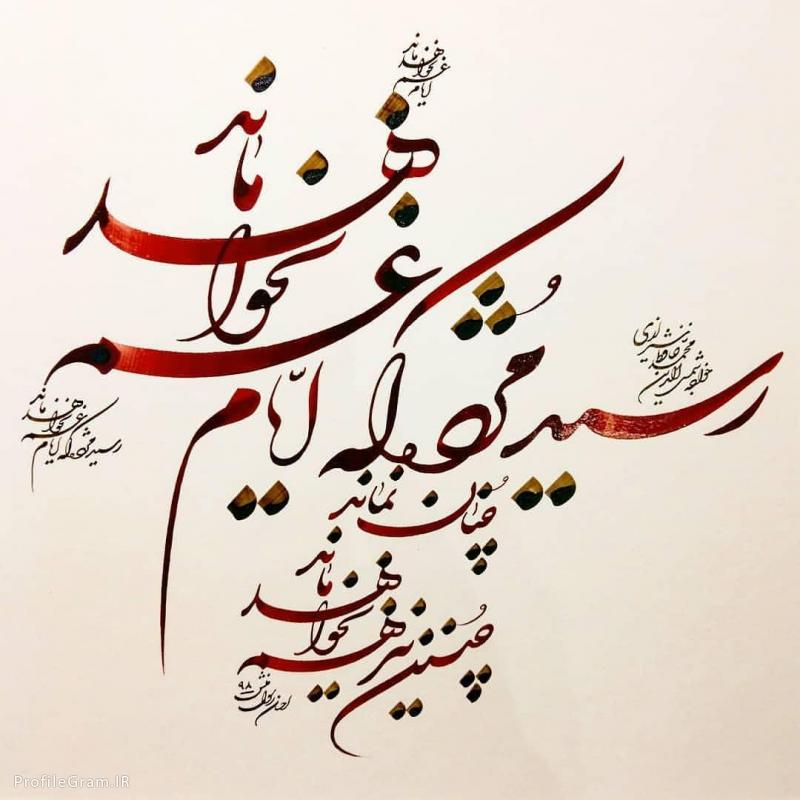 رسید مژده که ایام غم نخواهد ماند
چنان نماند
چنین نیز هم نخواهد ماند
غم نخواهد ماند
ایام
خواجه شمس الدین
محمد حافظ شیرازی
رسید مژده که ایام
غم نخواهد ماند
۹۸
ProfileGram.IR